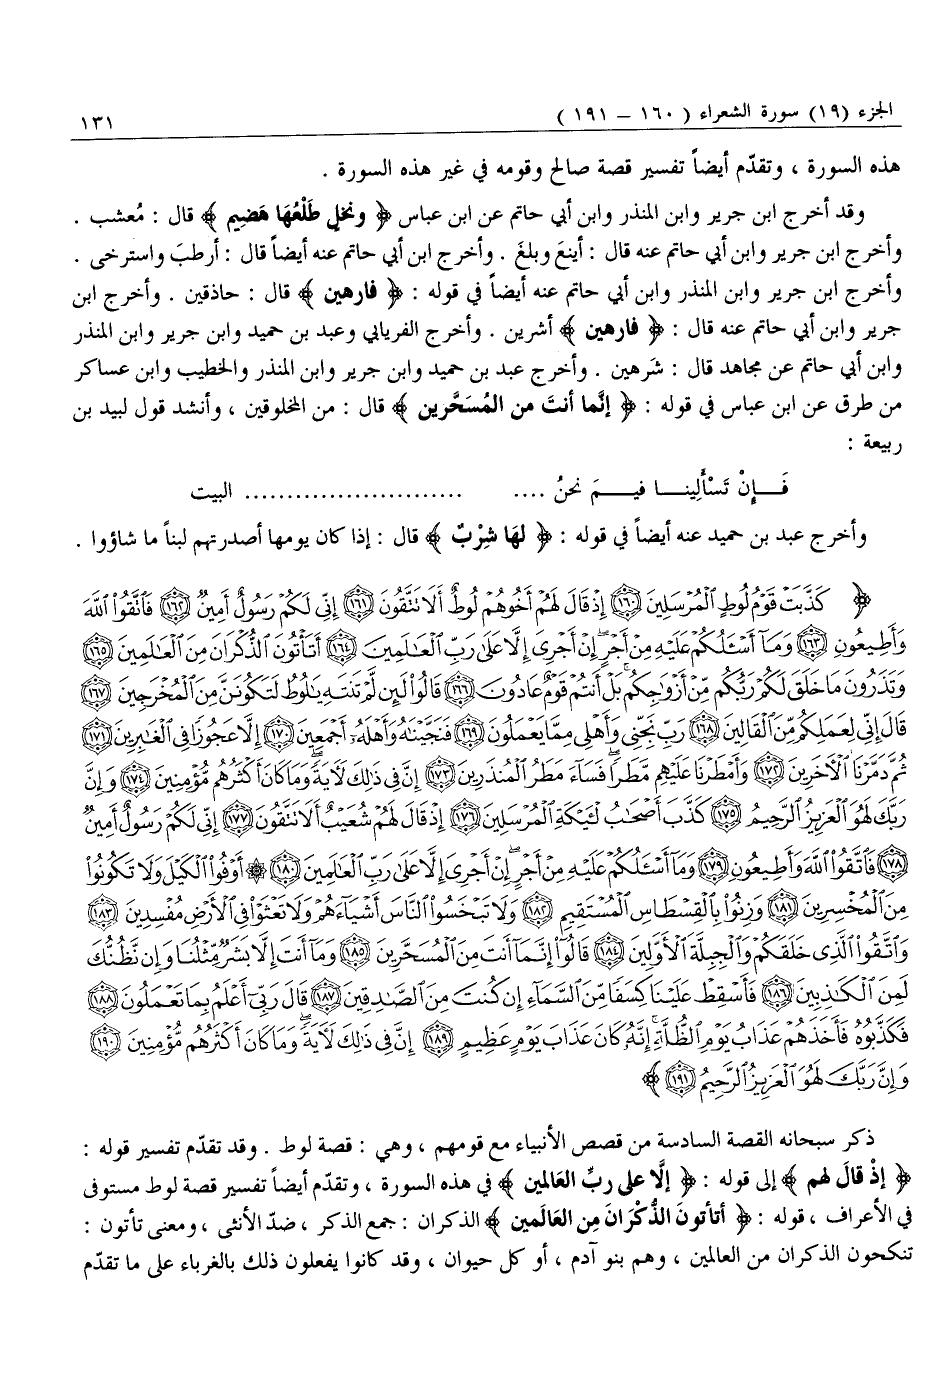 الجزء (١٩) سورة الشعراء ( ١٦٠ – ١٩١ )
١٣١
هذه السورة ، وتقدّم أيضاً تفسير قصة صالح وقومه في غير هذه السورة .
وقد أخرج ابن جرير وابن المنذر وابن أبي حاتم عن ابن عباس ﴿ ونخلٍ طَلْعُهَا هَضِيم ﴾ قال : مُعشب .
وأخرج ابن جرير وابن أبي حاتم عنه قال : أينعَ وبلغَ . وأخرج ابن أبي حاتم عنه أيضاً قال : أرطبَ واسترخى .
وأخرج ابن جرير وابن المنذر وابن أبي حاتم عنه أيضاً في قوله : ﴿ فارهين ﴾ قال : حاذقين . وأخرج ابن
جرير وابن أبي حاتم عنه قال : ﴿ فارهين ﴾ أشرين . وأخرج الفريابي وعبد بن حميد وابن جرير وابن المنذر
وابن أبي حاتم عن مجاهد قال : شَرهين . وأخرج عبد بن حميد وابن جرير وابن المنذر والخطيب وابن عساكر
من طرق عن ابن عباس في قوله : ﴿ إنَّما أنتَ من المُسَحَّرين ﴾ قال : من المخلوقين ، وأنشد قول لبيد بن
ربيعة :
فَـــإنْ تَسْأَلينـــا فيـــمَ نحنُ .... .......................... البيت
وأخرج عبد بن حميد عنه أيضاً في قوله : ﴿ لهَا شِرْبٌ ﴾ قال : إذا كان يومها أصدرتهم لبناً ما شاؤوا .
﴿ كَذَّبَتْ قَوْمُ لُوطٍ ٱلْمُرْسَلِينَ ﴿١٦٠﴾ إِذْ قَالَ لَهُمْ أَخُوهُمْ لُوطٌ أَلَا تَتَّقُونَ ﴿١٦١﴾ إِنِّي لَكُمْ رَسُولٌ أَمِينٌ ﴿١٦٢﴾ فَٱتَّقُوا۟ ٱللَّهَ
وَأَطِيعُونِ ﴿١٦٣﴾ وَمَآ أَسْـَٔلُكُمْ عَلَيْهِ مِنْ أَجْرٍۖ إِنْ أَجْرِىَ إِلَّا عَلَىٰ رَبِّ ٱلْعَـٰلَمِينَ ﴿١٦٤﴾ أَتَأْتُونَ ٱلذُّكْرَانَ مِنَ ٱلْعَـٰلَمِينَ ﴿١٦٥﴾
وَتَذَرُونَ مَا خَلَقَ لَكُمْ رَبُّكُم مِّنْ أَزْوَٰجِكُمۚ بَلْ أَنتُمْ قَوْمٌ عَادُونَ ﴿١٦٦﴾ قَالُوا۟ لَئِن لَّمْ تَنتَهِ يَـٰلُوطُ لَتَكُونَنَّ مِنَ ٱلْمُخْرَجِينَ ﴿١٦٧﴾
قَالَ إِنِّى لِعَمَلِكُم مِّنَ ٱلْقَالِينَ ﴿١٦٨﴾ رَبِّ نَجِّنِى وَأَهْلِى مِمَّا يَعْمَلُونَ ﴿١٦٩﴾ فَنَجَّيْنَـٰهُ وَأَهْلَهُۥٓ أَجْمَعِينَ ﴿١٧٠﴾ إِلَّا عَجُوزًا فِى ٱلْغَـٰبِرِينَ ﴿١٧١﴾
ثُمَّ دَمَّرْنَا ٱلْـَٔاخَرِينَ ﴿١٧٢﴾ وَأَمْطَرْنَا عَلَيْهِم مَّطَرًاۖ فَسَآءَ مَطَرُ ٱلْمُنذَرِينَ ﴿١٧٣﴾ إِنَّ فِى ذَٰلِكَ لَـَٔايَةًۖ وَمَا كَانَ أَكْثَرُهُم مُّؤْمِنِينَ ﴿١٧٤﴾ وَإِنَّ
رَبَّكَ لَهُوَ ٱلْعَزِيزُ ٱلرَّحِيمُ ﴿١٧٥﴾ كَذَّبَ أَصْحَـٰبُ لْـَٔيْكَةِ ٱلْمُرْسَلِينَ ﴿١٧٦﴾ إِذْ قَالَ لَهُمْ شُعَيْبٌ أَلَا تَتَّقُونَ ﴿١٧٧﴾ إِنِّى لَكُمْ رَسُولٌ أَمِينٌ
﴿١٧٨﴾ فَٱتَّقُوا۟ ٱللَّهَ وَأَطِيعُونِ ﴿١٧٩﴾ وَمَآ أَسْـَٔلُكُمْ عَلَيْهِ مِنْ أَجْرٍۖ إِنْ أَجْرِىَ إِلَّا عَلَىٰ رَبِّ ٱلْعَـٰلَمِينَ ﴿١٨٠﴾ ۞ أَوْفُوا۟ ٱلْكَيْلَ وَلَا تَكُونُوا۟
مِنَ ٱلْمُخْسِرِينَ ﴿١٨١﴾ وَزِنُوا۟ بِٱلْقِسْطَاسِ ٱلْمُسْتَقِيمِ ﴿١٨٢﴾ وَلَا تَبْخَسُوا۟ ٱلنَّاسَ أَشْيَآءَهُمْ وَلَا تَعْثَوْا۟ فِى ٱلْأَرْضِ مُفْسِدِينَ ﴿١٨٣﴾
وَٱتَّقُوا۟ ٱلَّذِى خَلَقَكُمْ وَٱلْجِبِلَّةَ ٱلْأَوَّلِينَ ﴿١٨٤﴾ قَالُوٓا۟ إِنَّمَآ أَنتَ مِنَ ٱلْمُسَحَّرِينَ ﴿١٨٥﴾ وَمَآ أَنتَ إِلَّا بَشَرٌ مِّثْلُنَا وَإِن نَّظُنُّكَ
لَمِنَ ٱلْكَـٰذِبِينَ ﴿١٨٦﴾ فَأَسْقِطْ عَلَيْنَا كِسَفًا مِّنَ ٱلسَّمَآءِ إِن كُنتَ مِنَ ٱلصَّـٰدِقِينَ ﴿١٨٧﴾ قَالَ رَبِّىٓ أَعْلَمُ بِمَا تَعْمَلُونَ ﴿١٨٨﴾
فَكَذَّبُوهُ فَأَخَذَهُمْ عَذَابُ يَوْمِ ٱلظُّلَّةِۚ إِنَّهُۥ كَانَ عَذَابَ يَوْمٍ عَظِيمٍ ﴿١٨٩﴾ إِنَّ فِى ذَٰلِكَ لَـَٔايَةًۖ وَمَا كَانَ أَكْثَرُهُم مُّؤْمِنِينَ ﴿١٩٠﴾
وَإِنَّ رَبَّكَ لَهُوَ ٱلْعَزِيزُ ٱلرَّحِيمُ ﴿١٩١﴾ ﴾
ذكر سبحانه القصة السادسة من قصص الأنبياء مع قومهم ، وهي : قصة لوط . وقد تقدّم تفسير قوله :
﴿ إذْ قالَ لهم ﴾ إلى قوله : ﴿ إلَّا على ربِّ العَالمين ﴾ في هذه السورة ، وتقدّم أيضاً تفسير قصة لوط مستوفى
في الأعراف ، قوله : ﴿ أتأتونَ الذُّكْرَانَ مِن العَالَمين ﴾ الذكران : جمع الذكر ، ضدّ الأنثى ، ومعنى تأتون :
تنكحون الذكران من العالمين ، وهم بنو آدم ، أو كل حيوان ، وقد كانوا يفعلون ذلك بالغرباء على ما تقدّم